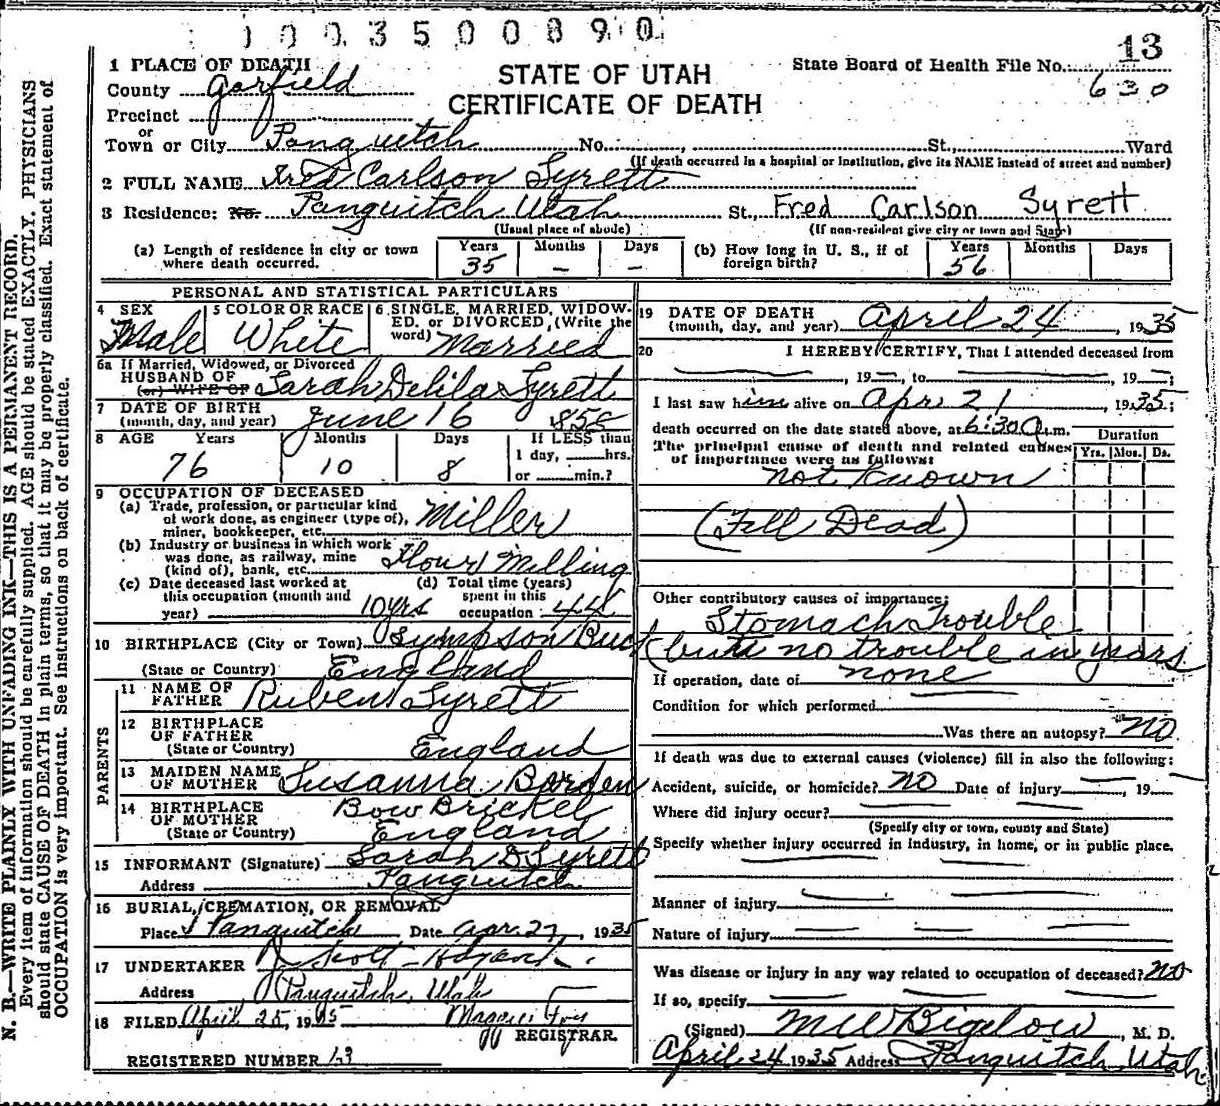 1003500890
13
1 PLACE OF DEATH
County Garfield
STATE OF UTAH
CERTIFICATE OF DEATH
State Board of Health File No.
630
Precinct
or
Town or City Panguitch No. St., Ward
(If death occurred in a hospital or institution, give its NAME instead of street and number)
2 FULL NAME Fred Carlson Syrett
3 Residence: No. Panguitch Utah St., Fred Carlson Syrett
(Usual place of abode) (If non-resident give city or town and State)
(a) Length of residence in city or town where death occurred. Years 35 Months – Days –
(b) How long in U. S., if of foreign birth? Years 56 Months Days
PERSONAL AND STATISTICAL PARTICULARS
4 SEX Male
5 COLOR OR RACE White
6 SINGLE, MARRIED, WIDOWED, or DIVORCED, (Write the word) Married
6a If Married, Widowed, or Divorced
HUSBAND OF
(or) WIFE OF Sarah Delila Syrett
7 DATE OF BIRTH
(month, day, and year) June 16 858
8 AGE Years 76 Months 10 Days 8 If LESS than 1 day, hrs. or min.?
9 OCCUPATION OF DECEASED
(a) Trade, profession, or particular kind of work done, as engineer (type of), miner, bookkeeper, etc. Miller
(b) Industry or business in which work was done, as railway, mine (kind of), bank, etc. Flour Milling
(c) Date deceased last worked at this occupation (month and year) 10 yrs
(d) Total time (years) spent in this occupation 44
10 BIRTHPLACE (City or Town) Sympson Buck
(State or Country) England
PARENTS
11 NAME OF FATHER Rubens Syrett
12 BIRTHPLACE OF FATHER
(State or Country) England
13 MAIDEN NAME OF MOTHER Susanna Borden
14 BIRTHPLACE OF MOTHER Bow Brickel
(State or Country) England
15 INFORMANT (Signature) Sarah D Syrett
Address Panguitch
16 BURIAL, CREMATION, OR REMOVAL
Place Panguitch Date Apr. 27, 1935
17 UNDERTAKER Scott
Address Panguitch, Utah
18 FILED April 25, 1935
REGISTRAR.
REGISTERED NUMBER 13
19 DATE OF DEATH
(month, day, and year) April 24, 1935
20 I HEREBY CERTIFY, That I attended deceased from
, 19 –, to , 19 –;
I last saw him alive on Apr 21, 1935;
death occurred on the date stated above, at 6:30 A.m.
The principal cause of death and related causes of importance were as follows:
Duration
Yrs. Mos. Ds.
not known
(Fell Dead)
Other contributory causes of importance:
Stomach Trouble
(but no trouble in years
If operation, date of none
Condition for which performed
Was there an autopsy? no
If death was due to external causes (violence) fill in also the following:
Accident, suicide, or homicide? no Date of injury , 19
Where did injury occur?
(Specify city or town, county and State)
Specify whether injury occurred in industry, in home, or in public place.
Manner of injury
Nature of injury
Was disease or injury in any way related to occupation of deceased? no
If so, specify
(Signed) M W Bigelow, M. D.
April 24 1935 Address Panguitch Utah.
N. B.—WRITE PLAINLY WITH UNFADING INK—THIS IS A PERMANENT RECORD.
Every item of information should be carefully supplied. AGE should be stated EXACTLY. PHYSICIANS
should state CAUSE OF DEATH in plain terms, so that it may be properly classified. Exact statement of
OCCUPATION is very important. See instructions on back of certificate.